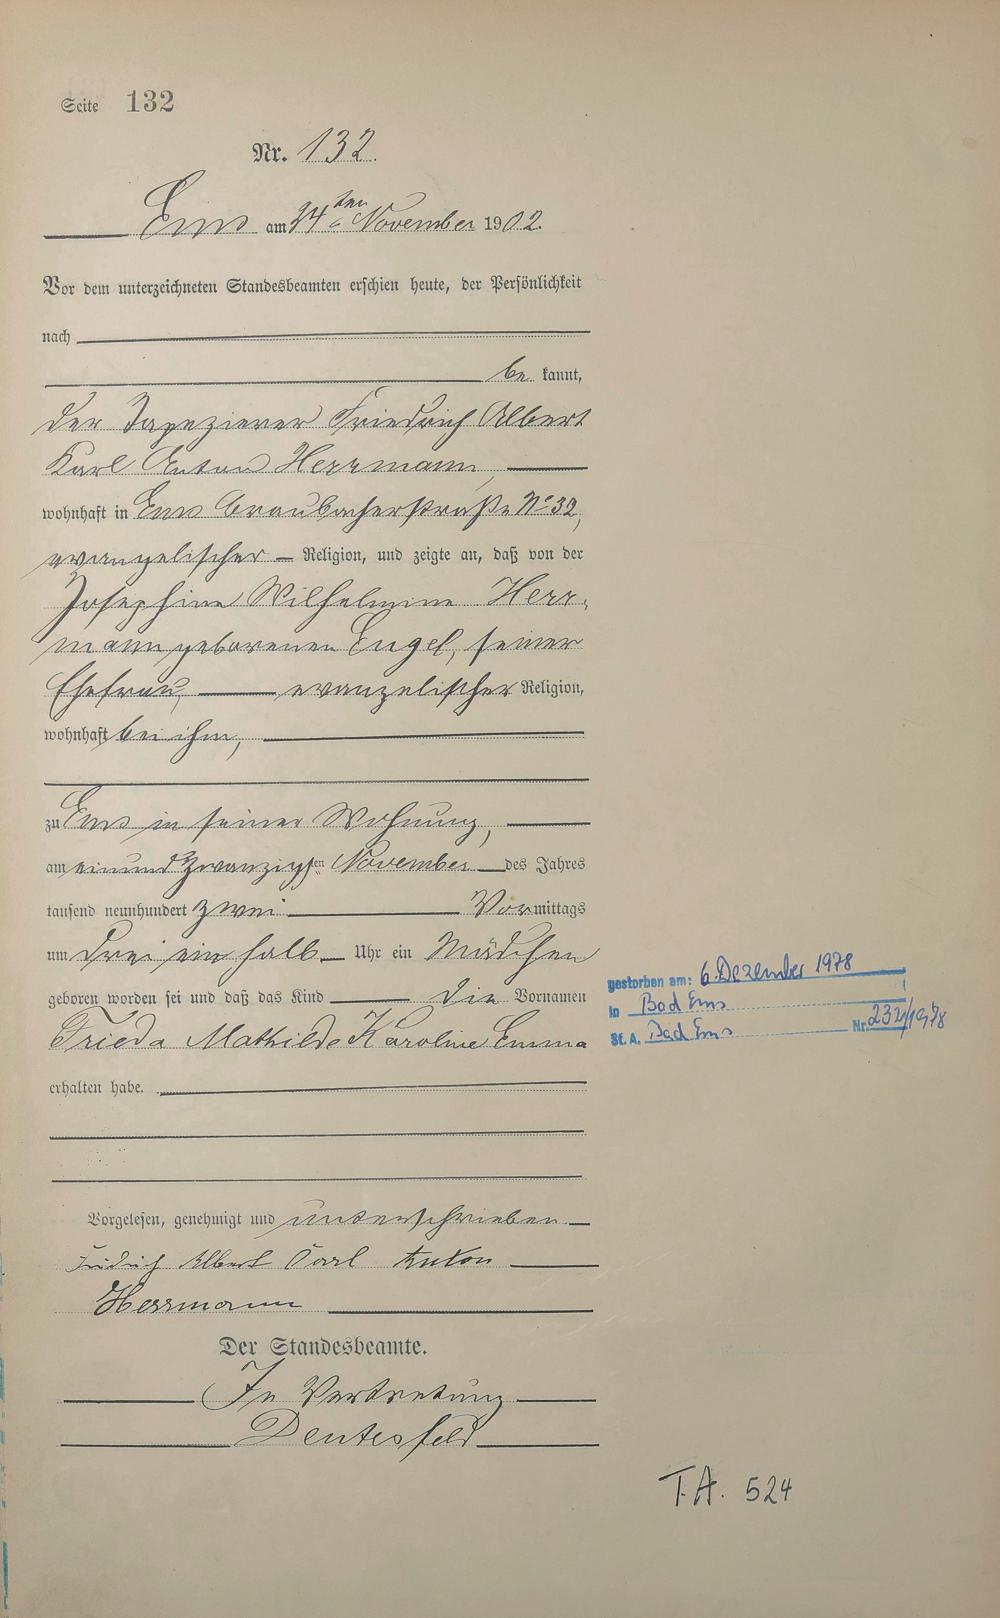 Seite 132
Nr. 132.
Ems am 24ten November 1902.
Vor dem unterzeichneten Standesbeamten erschien heute, der Persönlichkeit
nach
be kannt,
der Tapezierer Friedrich Albert
Karl Anton Herrmann,
wohnhaft in Ems Braubacherstraße No 32,
evangelischer Religion, und zeigte an, daß von der
Josephine Wilhelmine Herr-
mann geborenen Engel, seiner
Ehefrau, evangelischer Religion,
wohnhaft bei ihm,
zu Ems in seiner Wohnung,
am einundzwanzigsten November des Jahres
tausend neunhundert zwei Vormittags
um drei ein halb Uhr ein Mädchen
geboren worden sei und daß das Kind die Vornamen
Frieda Mathilde Karoline Emma
erhalten habe.
Vorgelesen, genehmigt und unterschrieben
Fridrich Albert Carl Anton
Herrmann
Der Standesbeamte.
In Vertretung
gestorben am: 6. Dezember 1978
in Bad Ems
St. A. Bad Ems Nr. 232/1978
T.A. 524